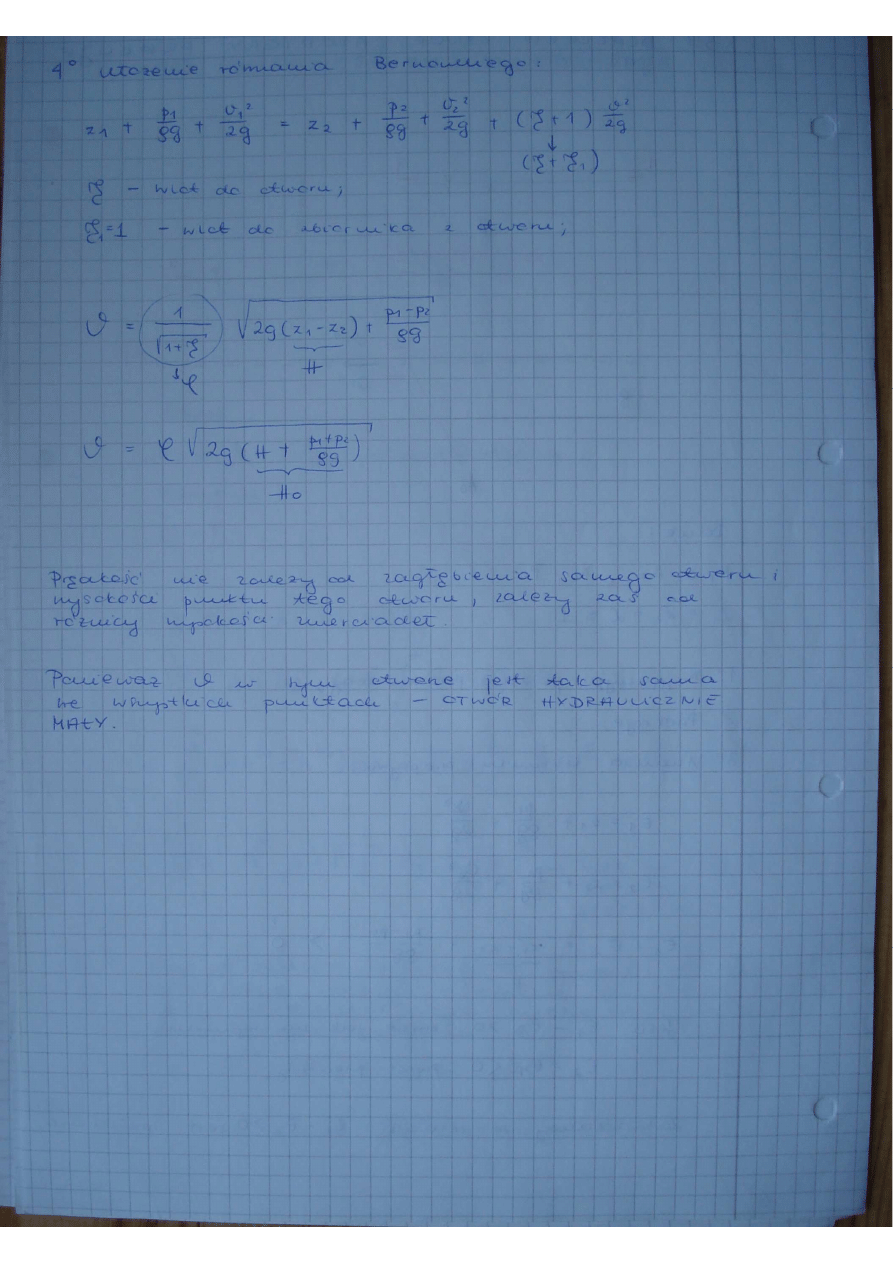 4° ułożenie równania Bernoulliego:
z₁ + p₁/ρg + υ₁²/2g = z₂ + p₂/ρg + υ₂²/2g + (ξ + 1) υ²/2g
↓
(ξ + ξ₁)
ξ – wlot do otworu;
ξ₁=1 – wlot do zbiornika z otworu;
υ = 1/√(1+ξ) √(2g(z₁-z₂) + (p₁-p₂)/ρg)
↓ φ H
υ = φ √(2g(H + (p₁+p₂)/ρg))
H₀
Prędkość nie zależy od zagłębienia samego otworu i
wysokości punktu tego otworu, zależy zaś od
różnicy wysokości zwierciadeł.
Ponieważ υ w tym otworze jest taka sama
we wszystkich punktach – OTWÓR HYDRAULICZNIE
MAŁY.